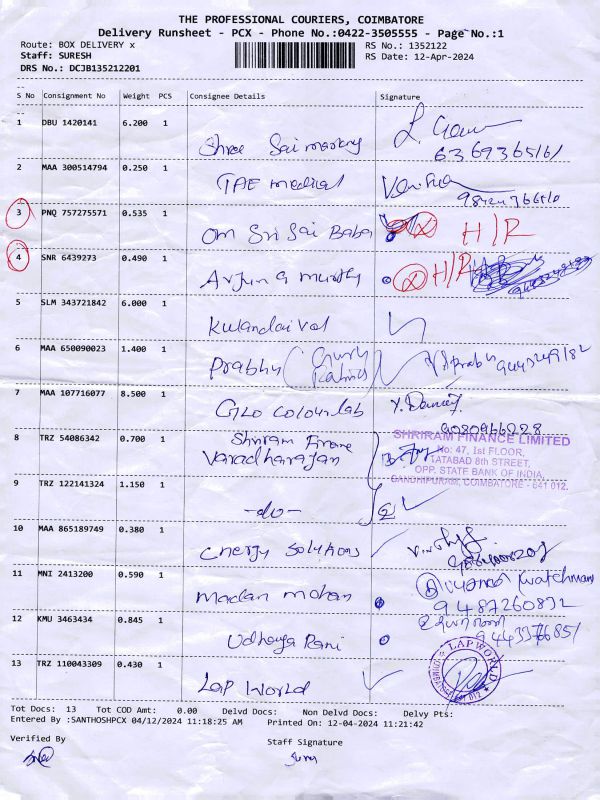 THE PROFESSIONAL COURIERS, COIMBATORE
Delivery Runsheet - PCX - Phone No.:0422-3505555 - Page No.:1
Route: BOX DELIVERY x RS No.: 1352122
Staff: SURESH RS Date: 12-Apr-2024
DRS No.: DCJB135212201
S No Consignment No Weight PCS Consignee Details Signature
1 DBU 1420141 6.200 1
Shree Sai
2 MAA 300514794 0.250 1
TAE medical
3 PNQ 757275571 0.535 1
Om Sri Sai Baba H/R
4 SNR 6439273 0.490 1
Arjun G murthy H/R
5 SLM 343721842 6.000 1
Kulandaivel
6 MAA 650090023 1.400 1
Prabhu
7 MAA 107716077 8.500 1
Glo colour lab
9080966228
8 TRZ 54086342 0.700 1
Shriram
Varadharajan
SHRIRAM FINANCE LIMITED
No: 47, Ist FLOOR,
TATABAD 8th STREET,
OPP. STATE BANK OF INDIA,
GANDHIPURAM, COIMBATORE - 641 012.
9 TRZ 122141324 1.150 1
-do-
10 MAA 865189749 0.380 1
Energy Solutions
11 MNI 2413200 0.590 1
Madan mohan (watchman)
9487260832
12 KMU 3463434 0.845 1
Udhaya Rani
13 TRZ 110043309 0.430 1
LAP WORLD
Lap World
Tot Docs: 13 Tot COD Amt: 0.00 Delvd Docs: Non Delvd Docs: Delvy Pts:
Entered By :SANTHOSHPCX 04/12/2024 11:18:25 AM Printed On: 12-04-2024 11:21:42
Verified By Staff Signature